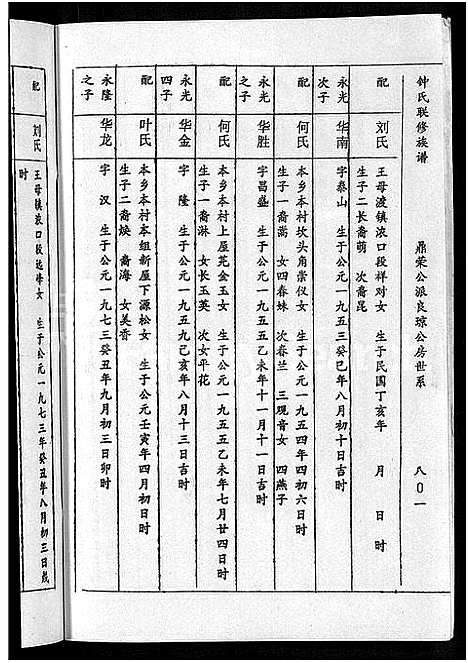 钟氏联修族谱 鼎荣公派良琼公房世系 八〇一
配 刘氏 王母渡镇浓口段祥对女 生于民国丁亥年 月 日 时
生子二长裔萌 次裔昆
永光次子 华南 字泰山 生于公元一九五三癸巳年八月初十日吉时
配 何氏 本乡本村坎头角崇仪女 生于公元一九五四年四月初六日时
生子一裔嵩 女四春妹 次春兰 三观音女 四燕子
永光之子 华胜 字昌盛 生于公元一九五五乙未年十一月十一日吉时
配 何氏 本乡本村上屋花金玉女 生于公元一九五五乙未年七月廿四日时
生子一裔淋 女长玉英 次女平花
永光四子 华金 字 隆 生于公元一九五九己亥年八月十三日吉时
配 叶氏 本乡本村本组新屋下源松女 生于公元壬寅年四月初日时
生子二裔焕 裔海 女美香
永隆之子 华龙 字 汉 生于公元一九七三癸丑年九月初三日卯时
配 刘氏 王母镇浓口段远峰女 生于公元一九七三年癸丑年八月初三日戌
时